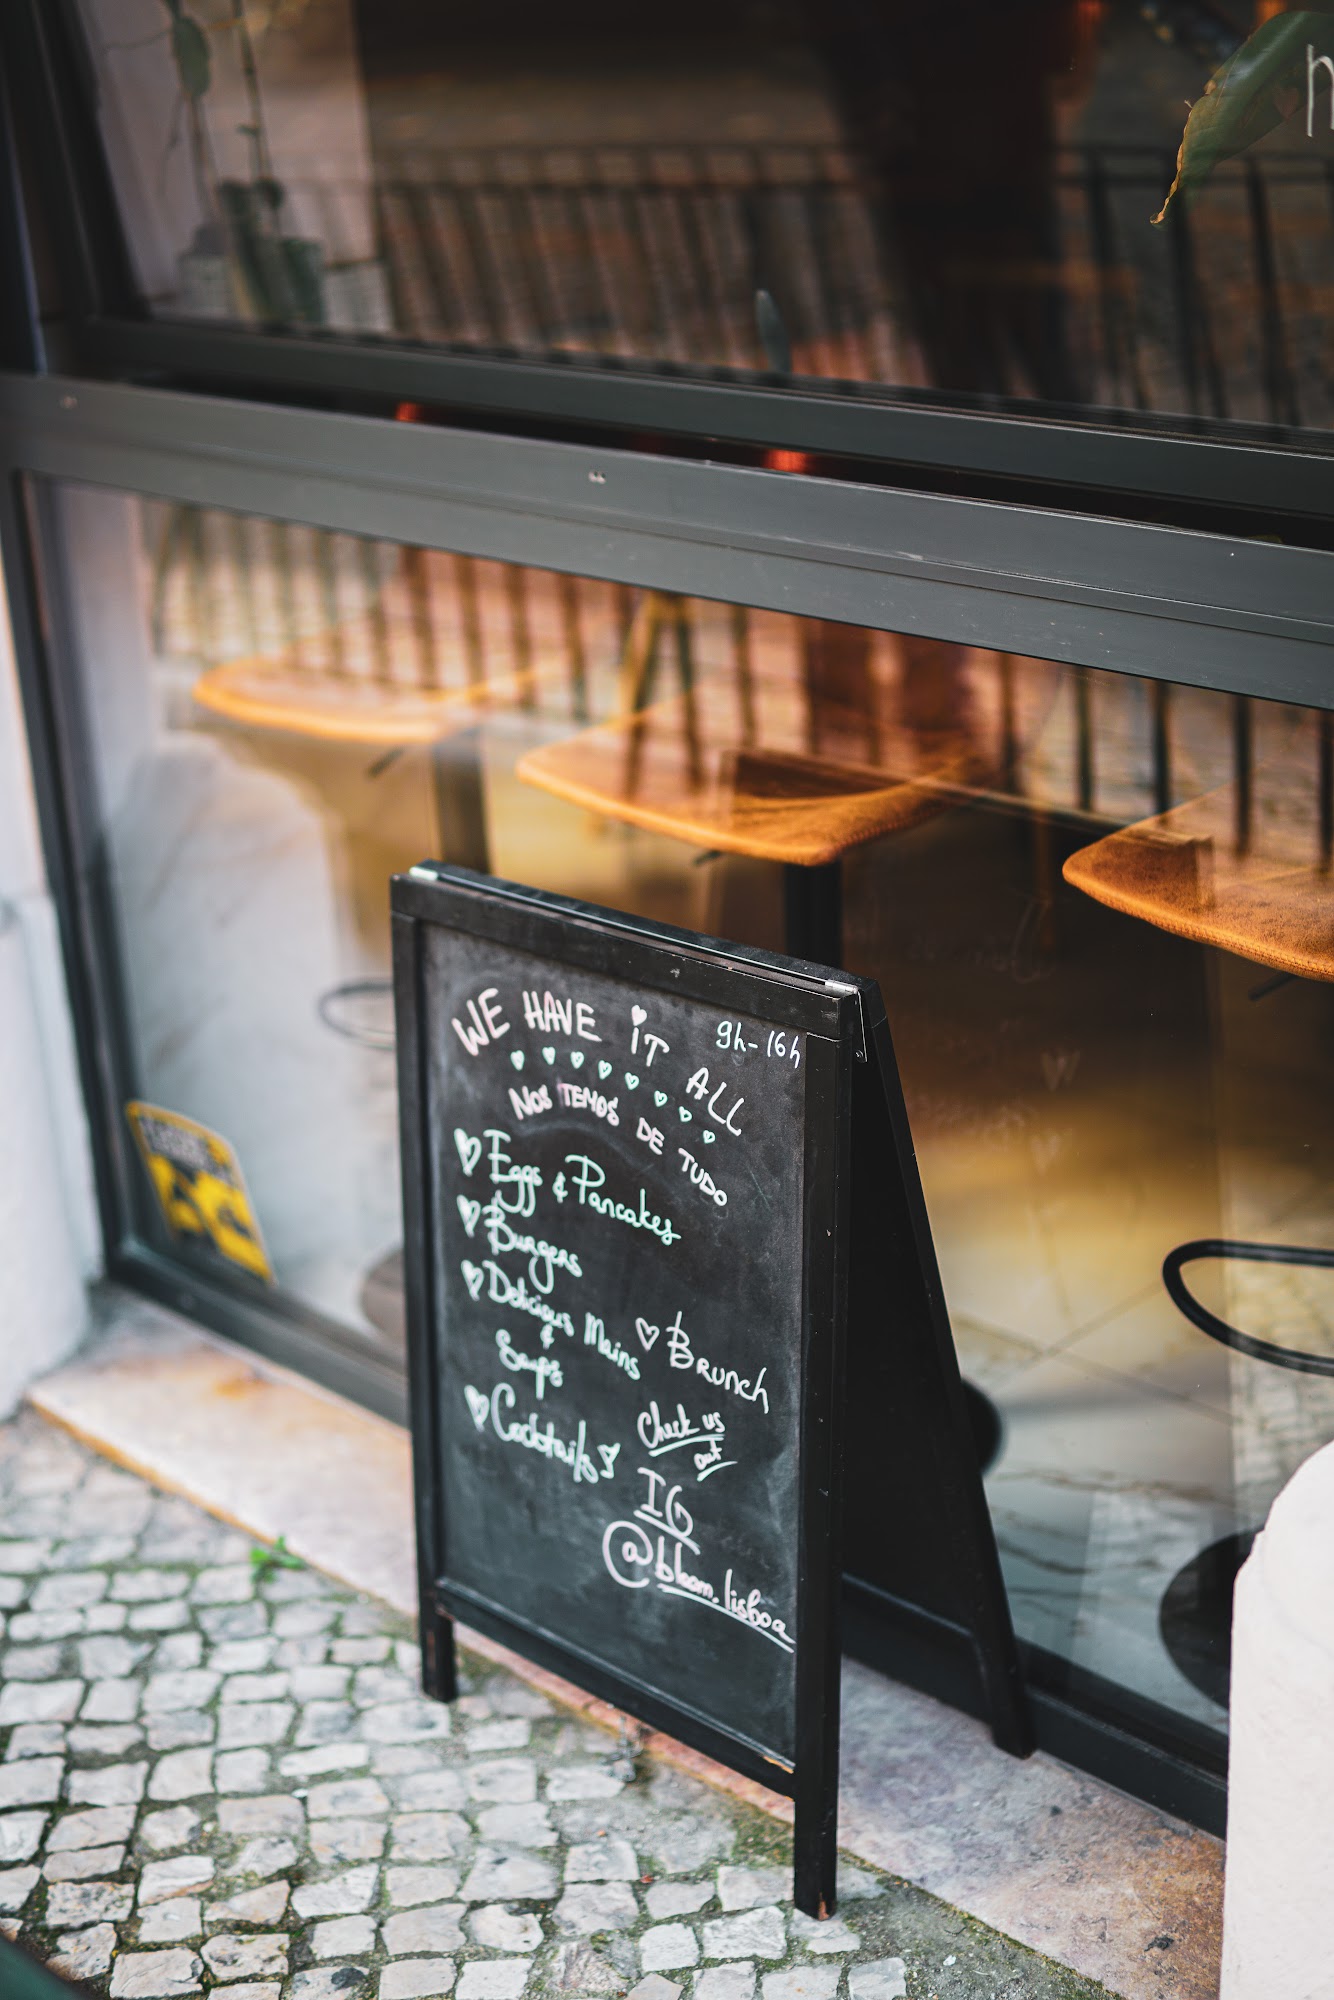 WE HAVE iT ALL
9h-16h
NOS TEMOS DE TUDO
Eggs & Pancakes
Burgers
Delicious Mains
&
Soups
Cocktails
BRUNCH
Check us
out
IG
@bloom.lisboa